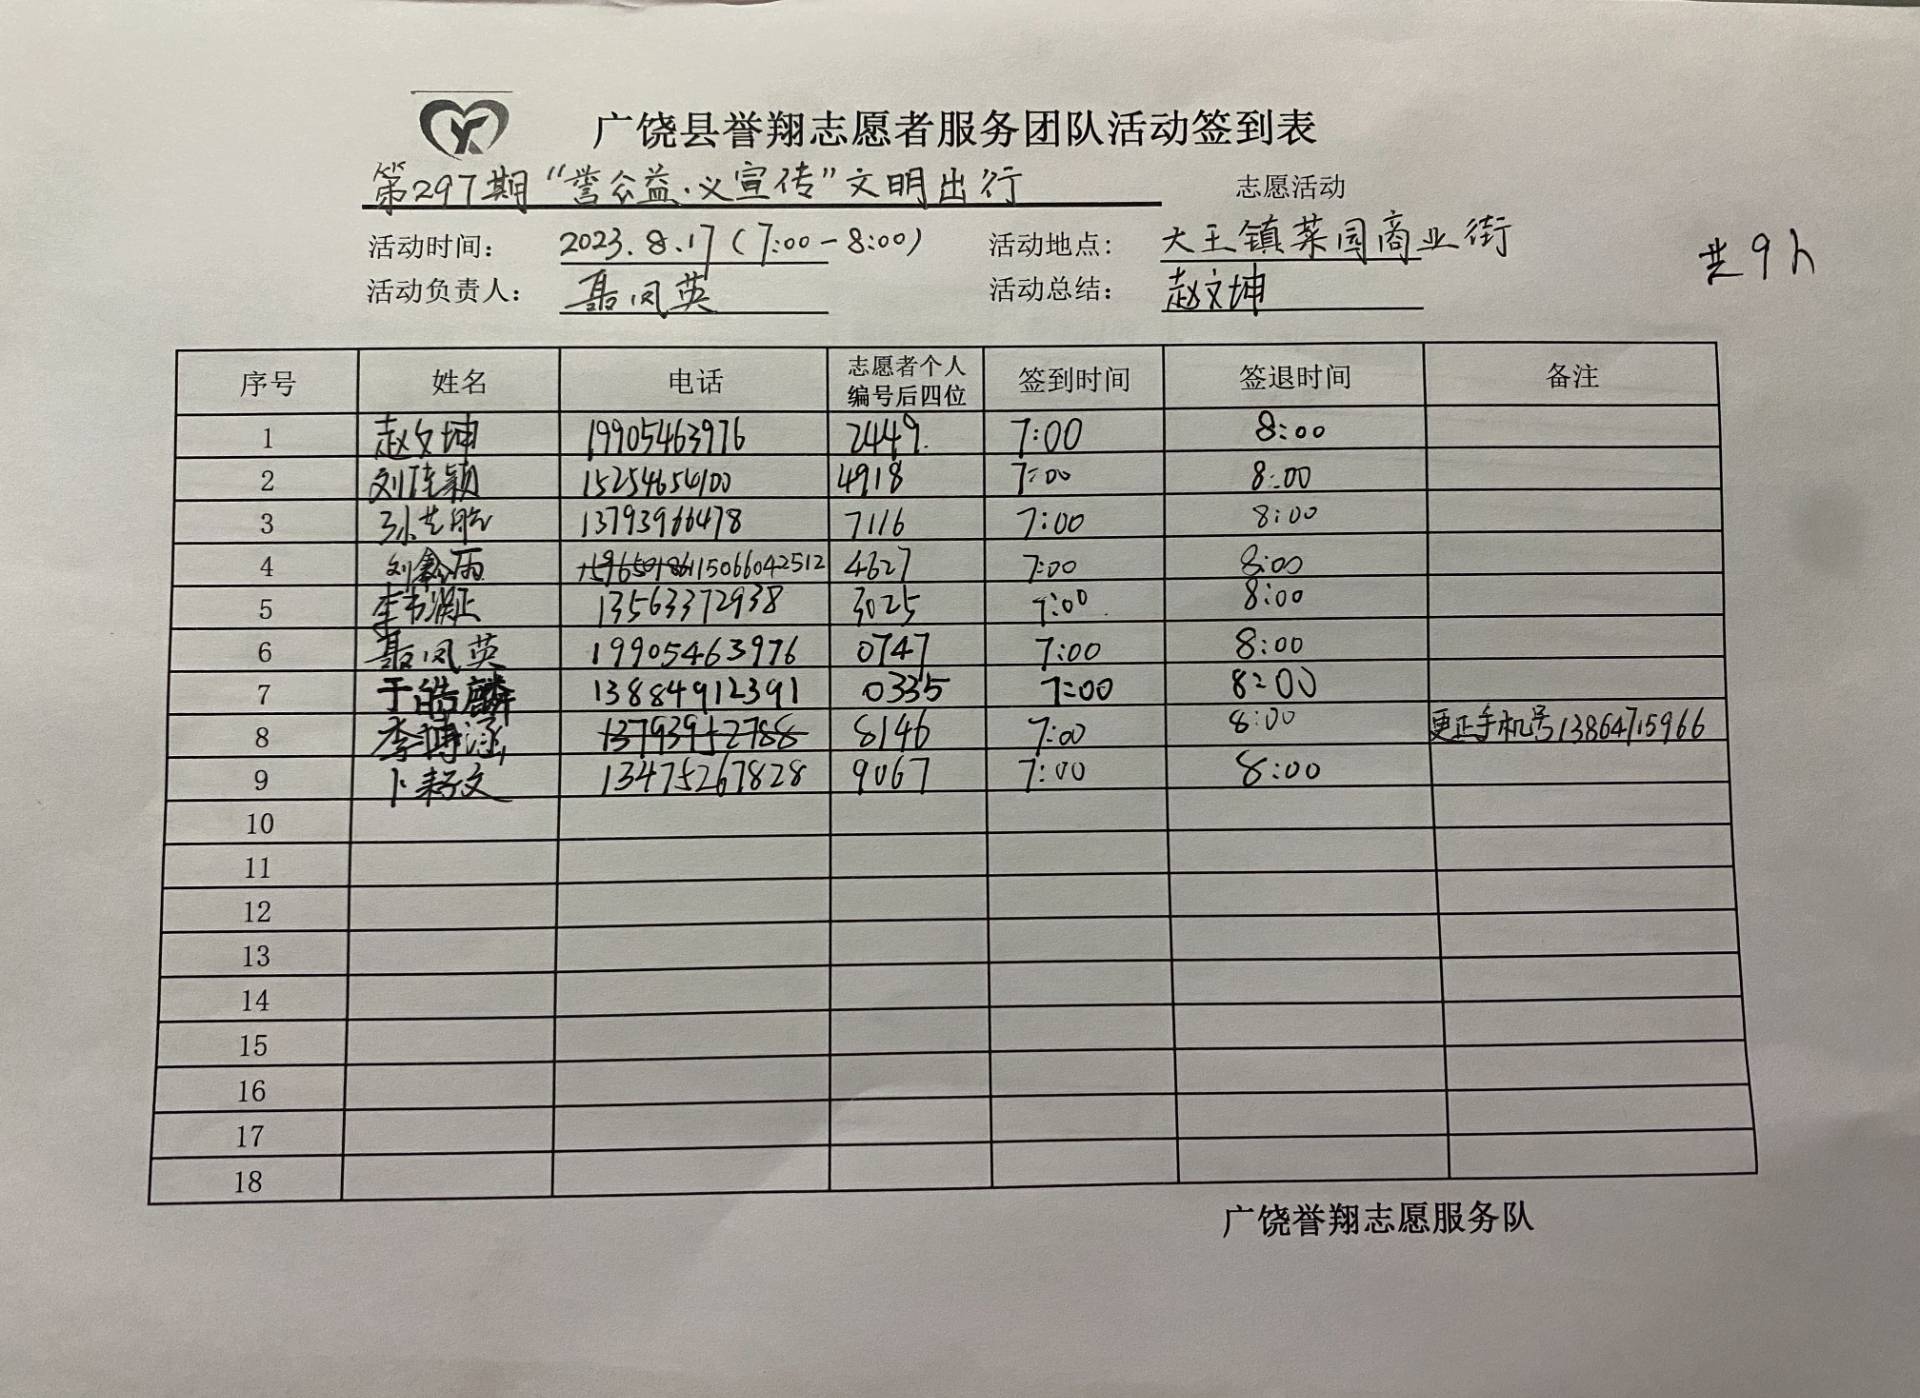 广饶县誉翔志愿者服务团队活动签到表
第297期“誉公益·义宣传”文明出行 志愿活动
活动时间： 2023.8.17（7:00-8:00） 活动地点： 大王镇菜园商业街
共9h
活动负责人： 聂凤英 活动总结： 赵文坤
序号 姓名 电话 志愿者个人编号后四位 签到时间 签退时间 备注
1 赵文坤 19905463976 2449 7:00 8:00
2 刘佳颖 15254654100 4918 7:00 8:00
3 13793966478 7116 7:00 8:00
4 刘鑫雨 15066042512 4627 7:00 8:00
5 13563372938 3025 7:00 8:00
6 聂凤英 19905463976 0747 7:00 8:00
7 于皓麟 13884912391 0335 7:00 8:00
8 李博涵 13793952788 8146 7:00 8:00 更正手机号13864715966
9 卜耔文 13475267828 9067 7:00 8:00
10
11
12
13
14
15
16
17
18
广饶誉翔志愿服务队